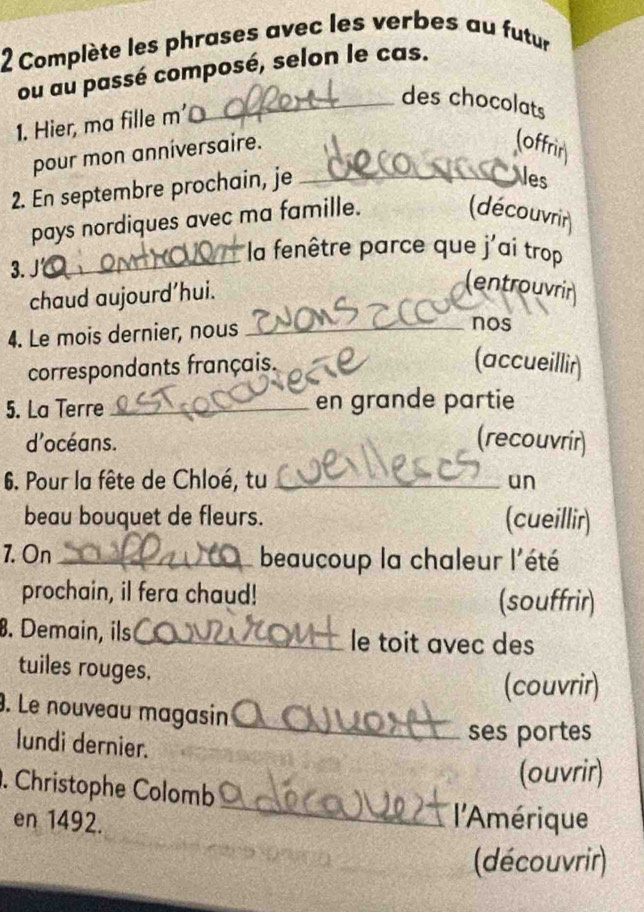 2 Complète les phrases avec les verbes au futur
ou au passé composé, selon le cas.
1. Hier, ma fille m'a offert des chocolats
pour mon anniversaire. (offrir)
2. En septembre prochain, je les
pays nordiques avec ma famille. (découvrir)
3. J' la fenêtre parce que j'ai trop
chaud aujourd'hui. (entrouvrir)
4. Le mois dernier, nous avons nos
correspondants français. (accueillir)
5. La Terre est en grande partie
d'océans. (recouvrir)
6. Pour la fête de Chloé, tu un
beau bouquet de fleurs. (cueillir)
7. On beaucoup la chaleur l'été
prochain, il fera chaud! (souffrir)
8. Demain, ils le toit avec des
tuiles rouges. (couvrir)
9. Le nouveau magasin a ses portes
lundi dernier. (ouvrir)
. Christophe Colomb a décauvert l'Amérique
en 1492. (découvrir)